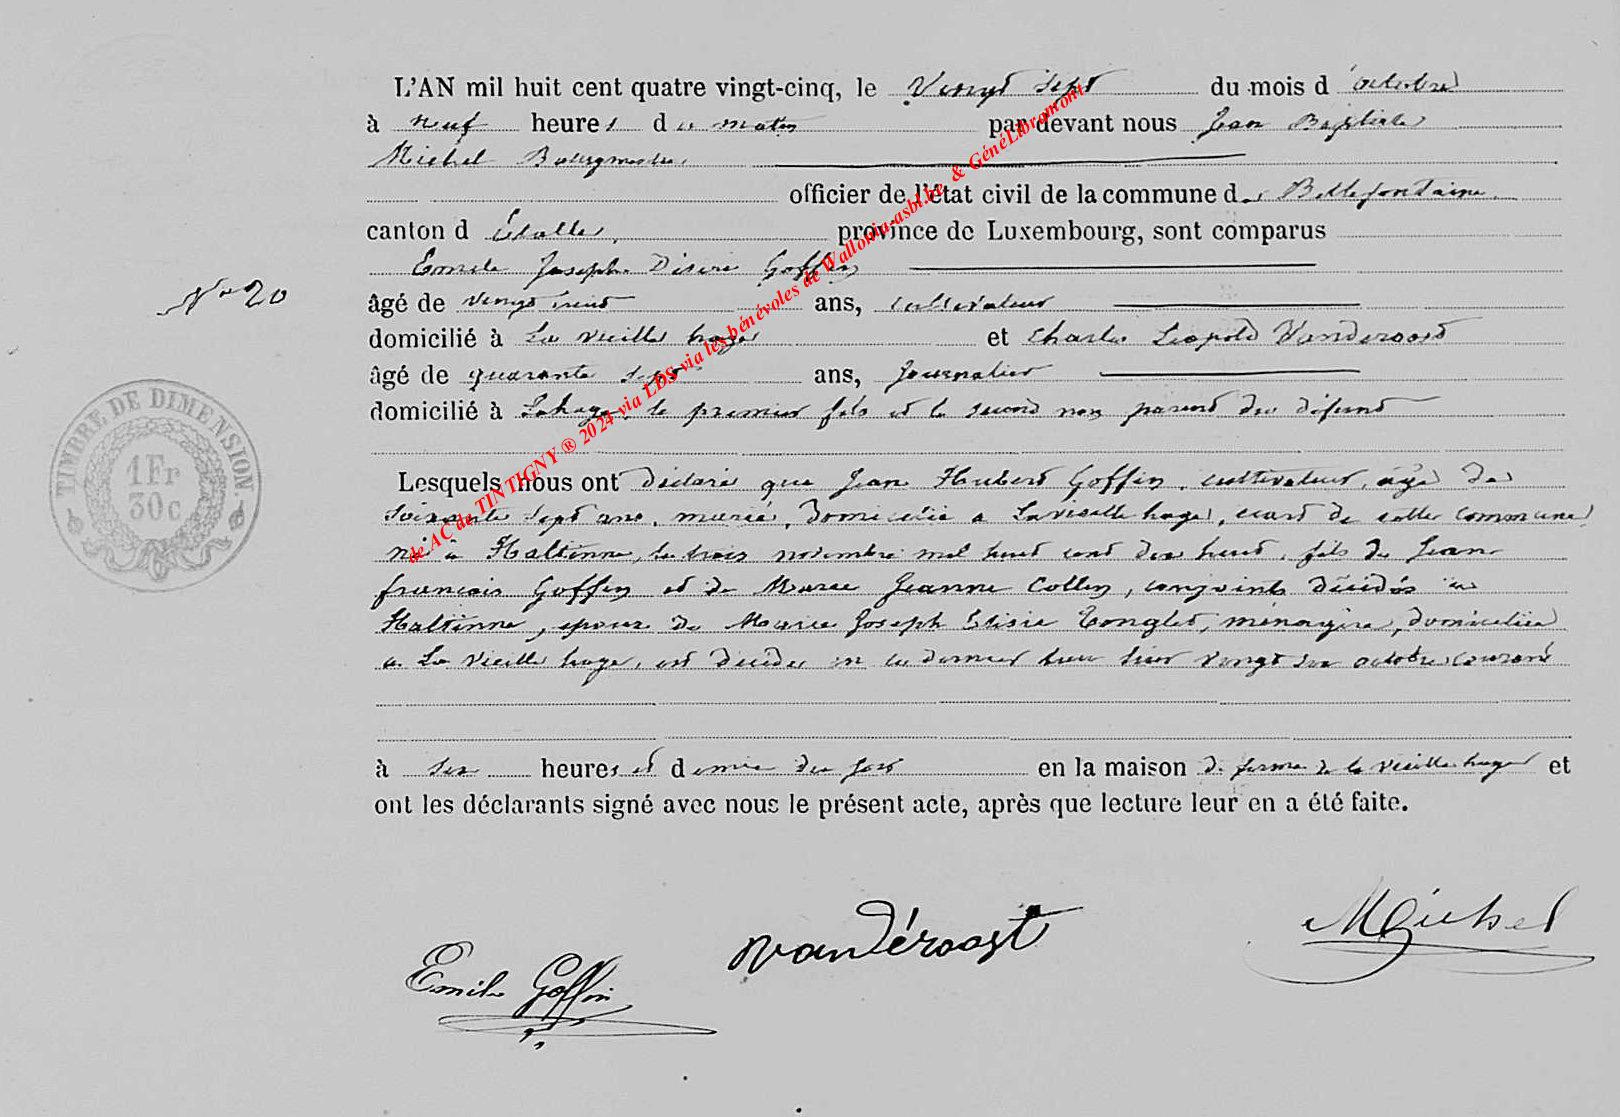 L'AN mil huit cent quatre vingt-cinq, le Vingt sept du mois d'octobre
à neuf heures du matin par devant nous Jean Baptiste
Michel Bourgmestre
officier de l'état civil de la commune de Bellefontaine
canton d'Étalle, province de Luxembourg, sont comparus
Emile Joseph Désiré Goffin
N° 20
âgé de vingt huit ans, cultivateur
domicilié à La vieille haye et Charles Léopold Vanderoost
âgé de quarante sept ans, Journalier
domicilié à Lahage, le premier fils et le second non parent du défunt
TIMBRE DE DIMENSION.
1 Fr
30 c
Lesquels nous ont déclaré que Jean Hubert Goffin, cultivateur, âgé de
soixante sept ans, marié, domicilié à La vieille haye, écart de cette commune,
né à Haltinne, le trois novembre mil huit cent dix huit, fils de Jean
françois Goffin et de Marie Jeanne Collin, conjoints décédés à
Haltinne, époux de Marie Joseph Elisie Tonglet, ménagère, domiciliée
à La Vieille haye, est décédé en ce dernier lieu hier vingt six octobre courant
à six heures et demie du soir en la maison de ferme de la vieille haye et
ont les déclarants signé avec nous le présent acte, après que lecture leur en a été faite.
Emile Goffin
vandéroost
Michel
de AC de TINTIGNY ® 2024 via LDS via les bénévoles de Wallonia-asbl.be & GénéLibramont